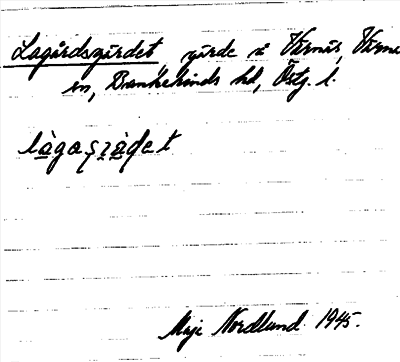 Lagårdsgärdet, gärde å Värnäs, Värna
sn, Bankekinds hd, Östg. l.
làgasz̤ä̀det
Maj Nordlund 1945.